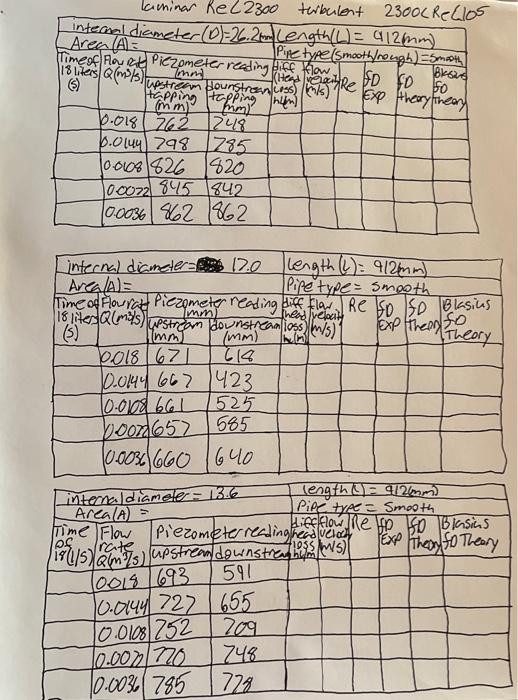 Laminar Re<2300 turbulent 2300<Re<105
internal diameter (D)=26.2mm Length(L) = 912(mm)
Area (A) = Pipe type (smooth/rough) = smooth
Time of 18 liters (s) Flow rate Q(m³/s) Piezometer reading (mm) upstream tapping (mm) downstream tapping (mm) diff (Head loss) hL(m) flow velocity (m/s) Re fD EXP fD theory Blasius fD Theory
0.018 762 748
0.0144 798 785
0.0108 826 820
0.0072 845 842
0.0036 862 862
internal diameter = 17.0 Length (L) = 912(mm)
Area(A) = Pipe type = smooth
Time of 18 liters (s) Flow rate Q(m³/s) Piezometer reading (mm) upstream (mm) downstream (mm) diff head loss hL(m) flow velocity (m/s) Re fD EXP fD theory Blasius fD Theory
0.018 671
0.0144 667 423
0.0108 661 525
0.0072 657 585
0.0036 660 640
internal diameter = 13.6 Length (L) = 912(mm)
Area(A) = Pipe type = Smooth
Time of 18(l/s) Flow rate Q(m³/s) Piezometer reading upstream downstream diff head loss hL/m flow velocity (m/s) Re fD Exp fD Theory Blasius fD Theory
0.018 693 591
0.0144 727 655
0.0108 752 709
0.0072 770 748
0.0036 785 778